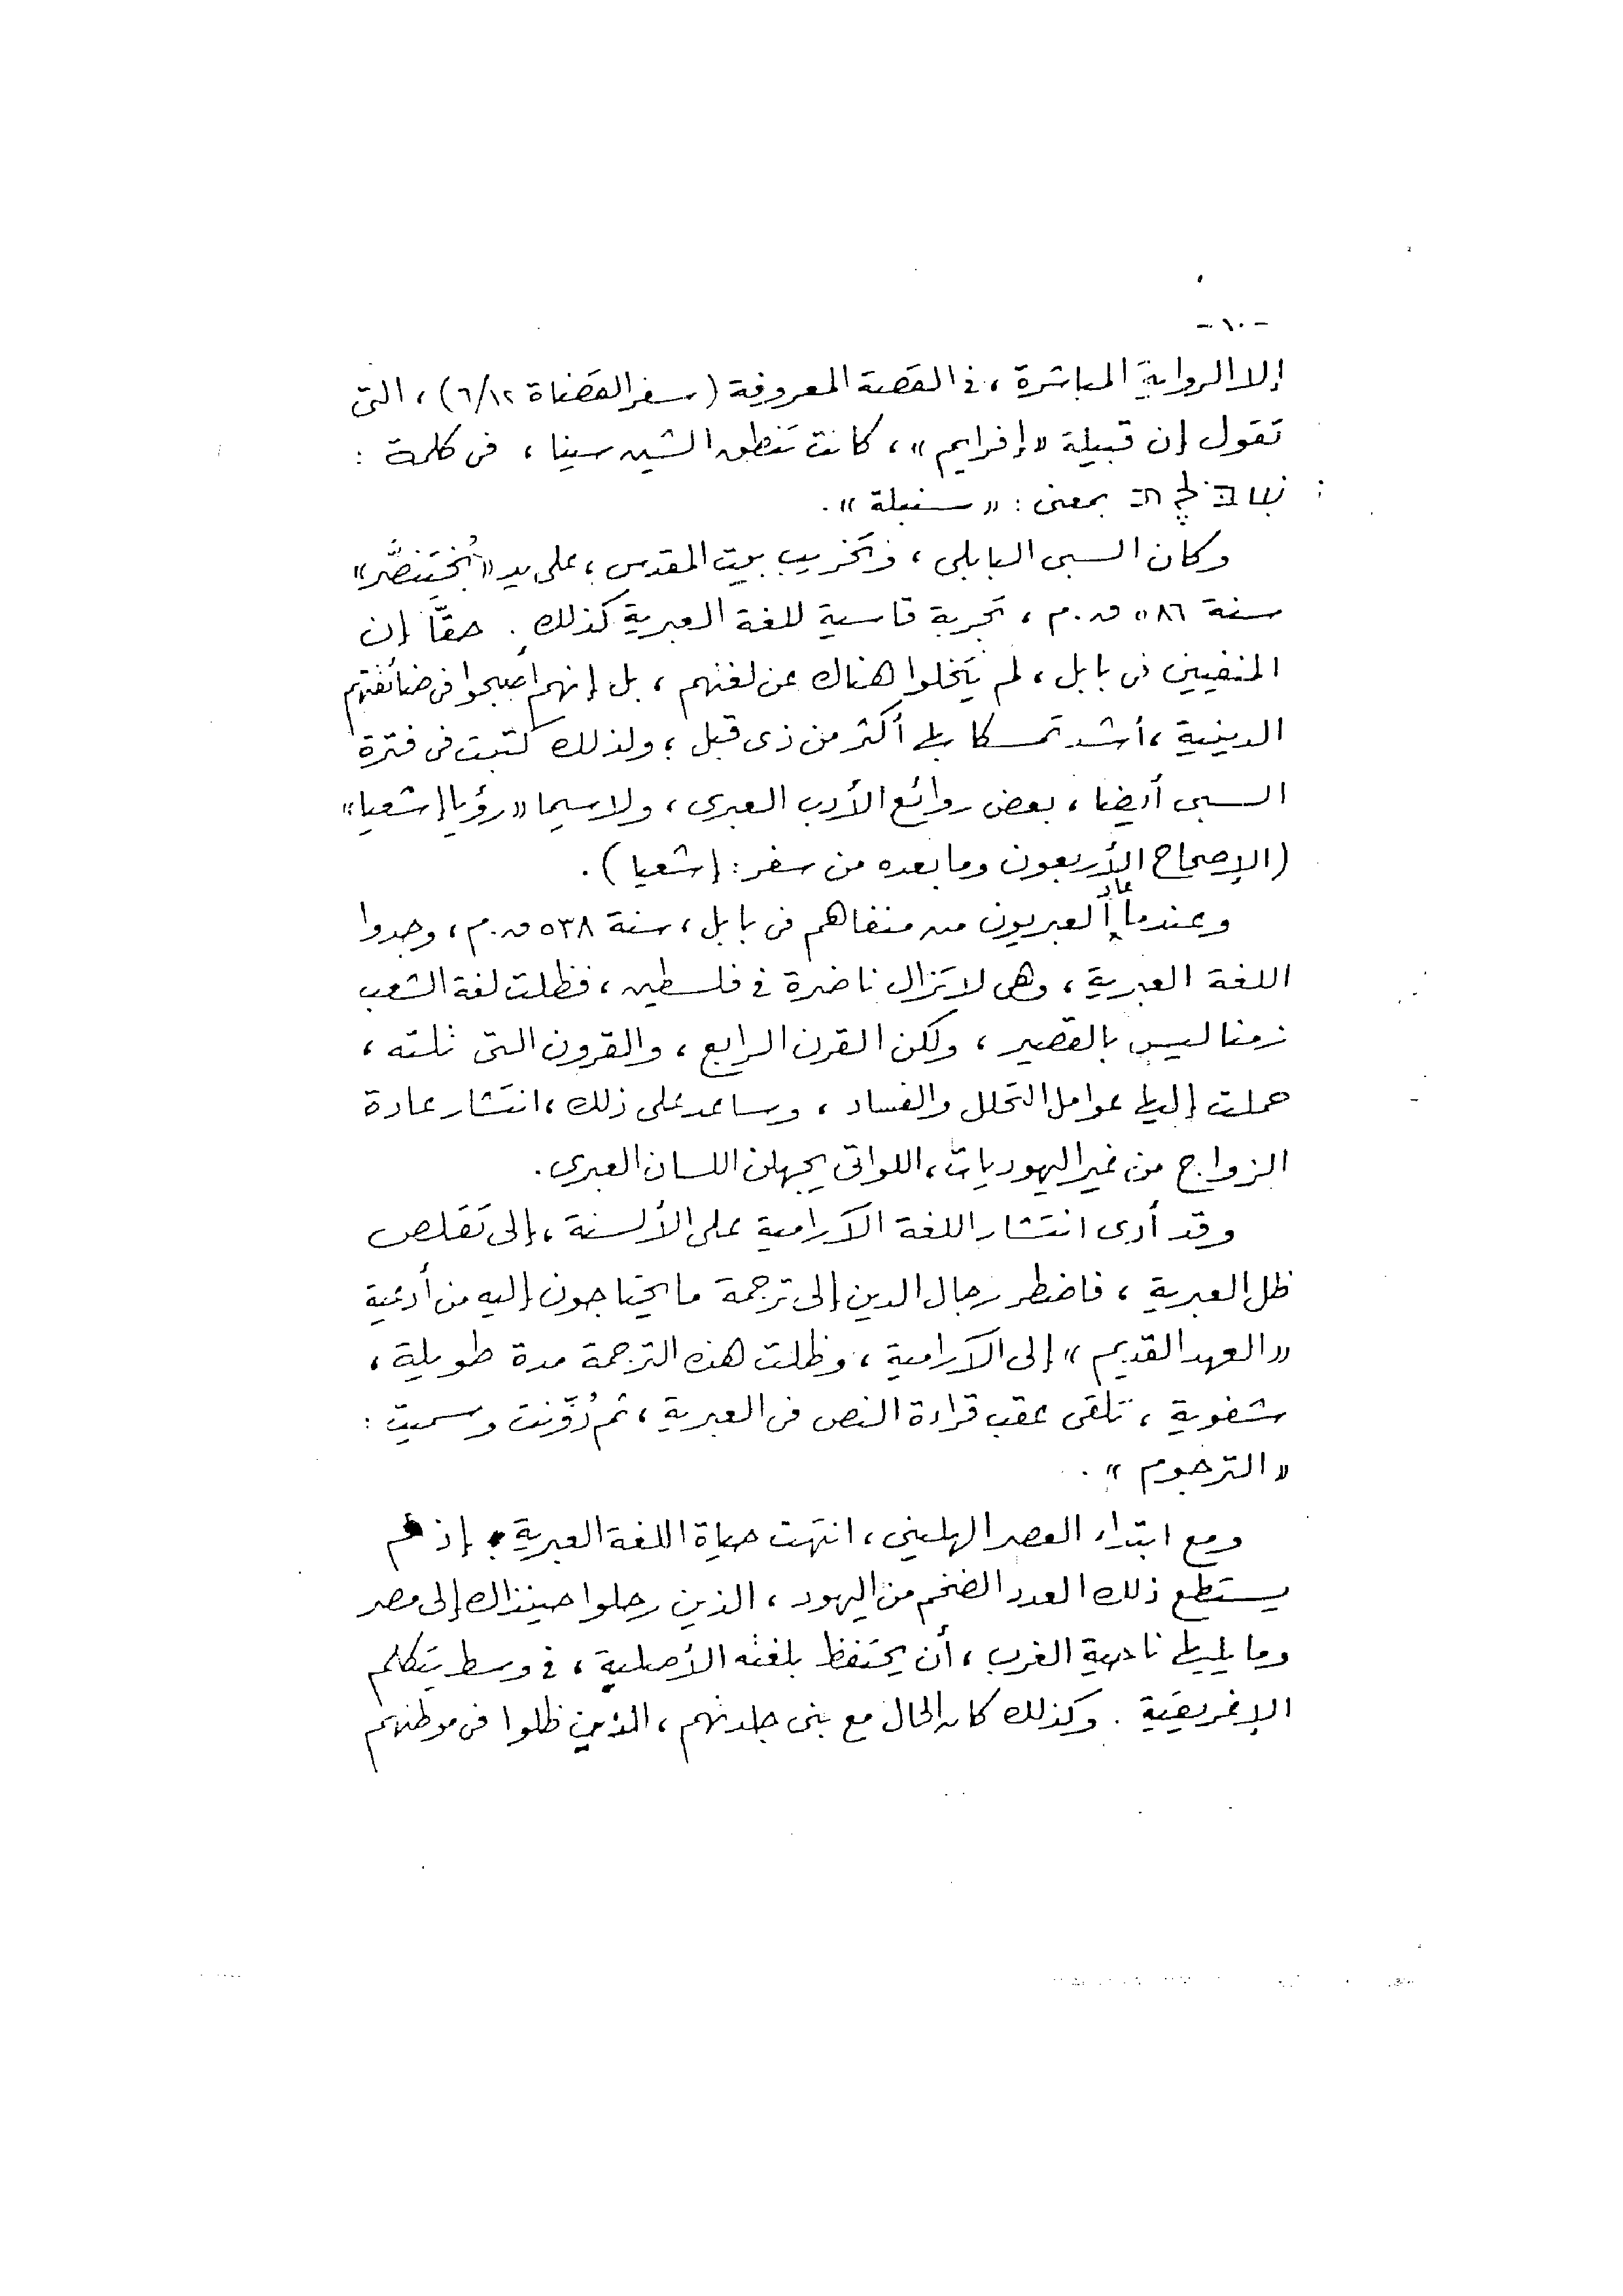 - ١٠ -
إلا الرواية المباشرة ، فى القصة المعروفة (سفر القضاة ٦/١٢) ، التى
تقول إن قبيلة «إفرايم» ، كانت تنطق الشين سينا ، فى كلمة :
بمعنى : «سنبلة» .
وكان السبى البابلى ، وتخريب بيت المقدس ، على يد «بُخْتَنَصَّر»
سنة ٥٨٦ ق.م ، تجربة قاسية للغة العبرية كذلك . حقًّا إن
المنفيين فى بابل ، لم يتخلوا هناك عن لغتهم ، بل إنهم أصبحوا فى ضائقتهم
الدينية ، أشد تمسكا بها أكثر من ذى قبل ؛ ولذلك كتبت فى فترة
السبى أيضا ، بعض روائع الأدب العبرى ، ولاسيما «رؤيا إشعيا»
(الإصحاح الأربعون وما بعده من سفر : إشعيا) .
وعندما عاد العبريون من منفاهم فى بابل ، سنة ٥٣٨ ق.م ، وجدوا
اللغة العبرية ، وهى لاتزال ناضرة فى فلسطين ، فظلت لغة الشعب
زمنا ليس بالقصير ، ولكن القرن الرابع ، والقرون التى تلته ،
حملت إليها عوامل التحلل والفساد ، وساعد على ذلك ، انتشار عادة
الزواج من غير اليهوديات ، اللواتى يجهلن اللسان العبرى .
وقد أدى انتشار اللغة الآرامية على الألسنة ، إلى تَقَلص
ظل العبرية ، فاضطر رجال الدين إلى ترجمة ما يحتاجون إليه من أدعية
«العهد القديم» إلى الآرامية ، وظلت هذه الترجمة مدة طويلة ،
شفوية ، تلقى عقب قراءة النص فى العبرية ، ثم دُوِّنت وسميت :
«الترجوم» .
ومع ابتداء العصر الهلينى ، انتهت حياة اللغة العبرية ؛ إذ لم
يستطع ذلك العدد الضخم من اليهود ، الذين رحلوا حينذاك إلى مصر
وما يليها ناحية الغرب ، أن يحتفظ بلغته الأصلية ، فى وسط يتكلم
الإغريقية . وكذلك كان الحال مع بنى جلدتهم ، الذين ظلوا فى موطنهم